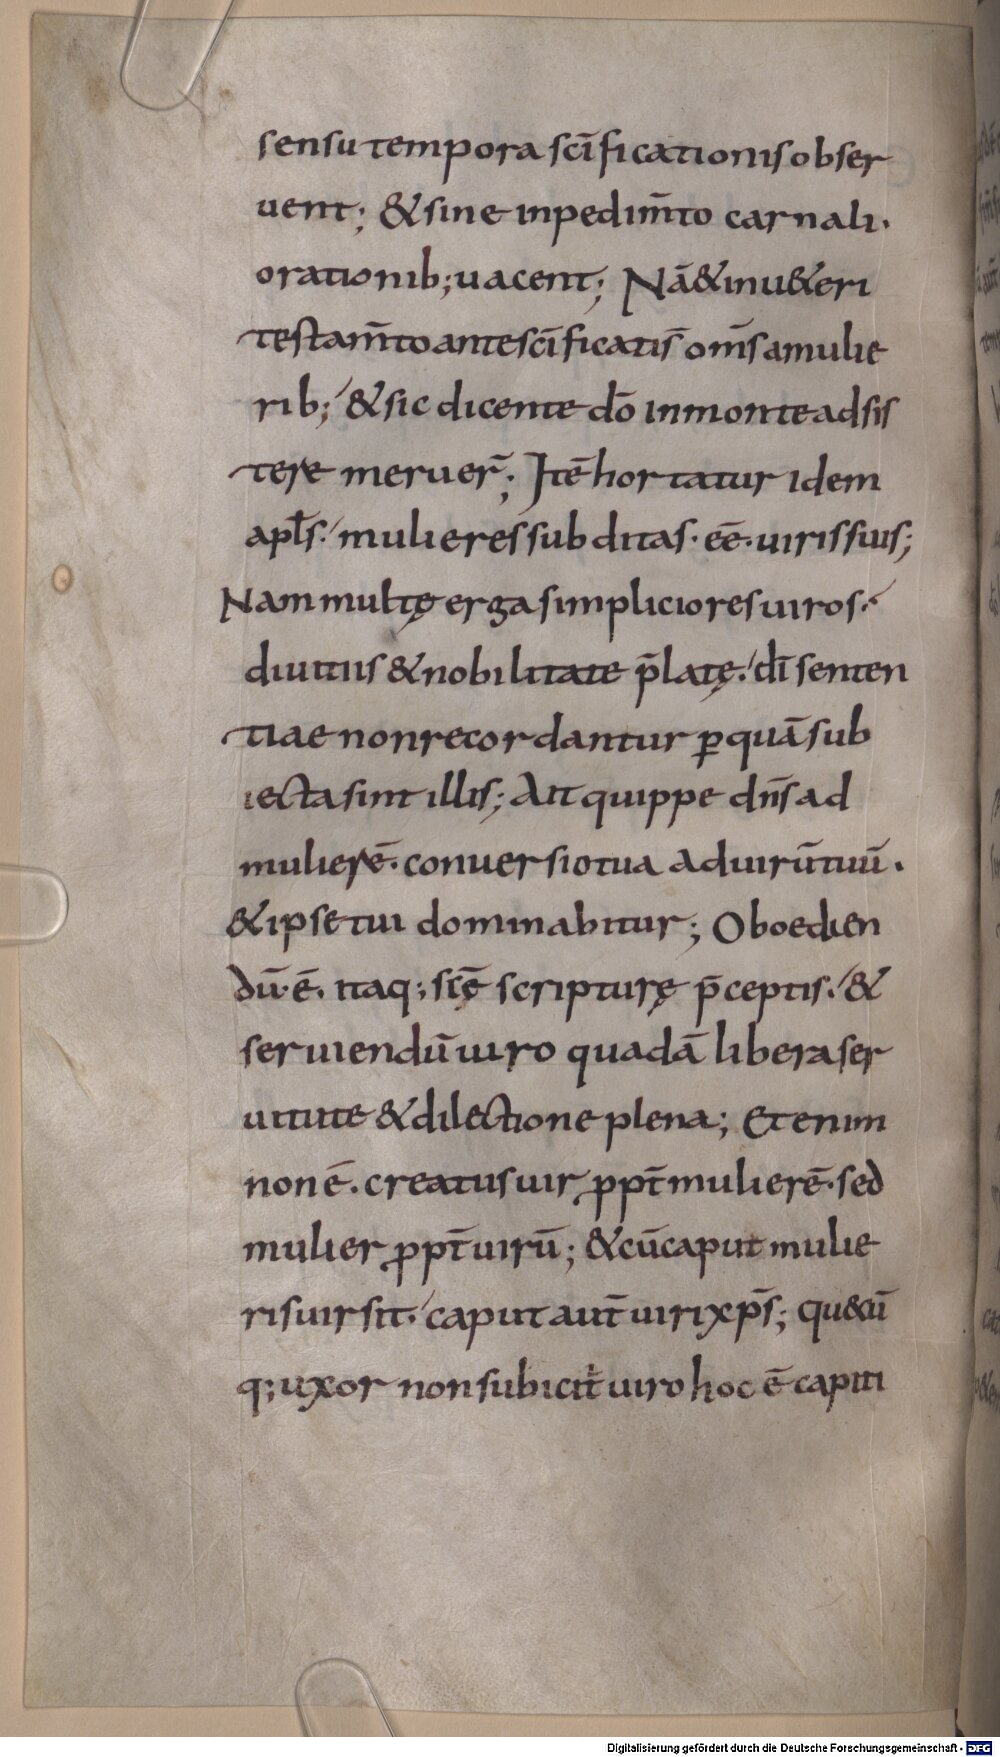 sensu tempora scīficationis obser
uent; & sine inpedim̄to carnali.
orationib; uacent; Nā & in u&eri
testam̄to ante scīficatis om̄s a mulie
rib; & sic dicente dō in monte adsis
tere meruer̄; Itē hortatur idem
apl̄s. mulieres subditas. eē. uiris suis;
Nam multę erga simpliciores uiros.
diuitiis & nobilitate p̄latę. dī senten
tiae non recordantur ꝑ quā sub
iecta sint illis; Ait quippe dn̄s ad
mulierē. conuersio tua ad uirū tuū.
& ipse tui dominabitur; Oboedien
dū. ē. itaq; scę̄ scripturę p̄ceptis. &
seruiendū uiro quadā libera ser
uitute & dilectione plena; Etenim
non ē. creatus uir ꝓpt̄ mulierē. sed
mulier ꝓpt̄ uirū; & cū caput mulie
ris uir sit. caput aut̄ uiri xp̄s; qu&cū
q; uxor non subicit̄ uiro hoc ē capiti
Digitalisierung gefördert durch die Deutsche Forschungsgemeinschaft - DFG